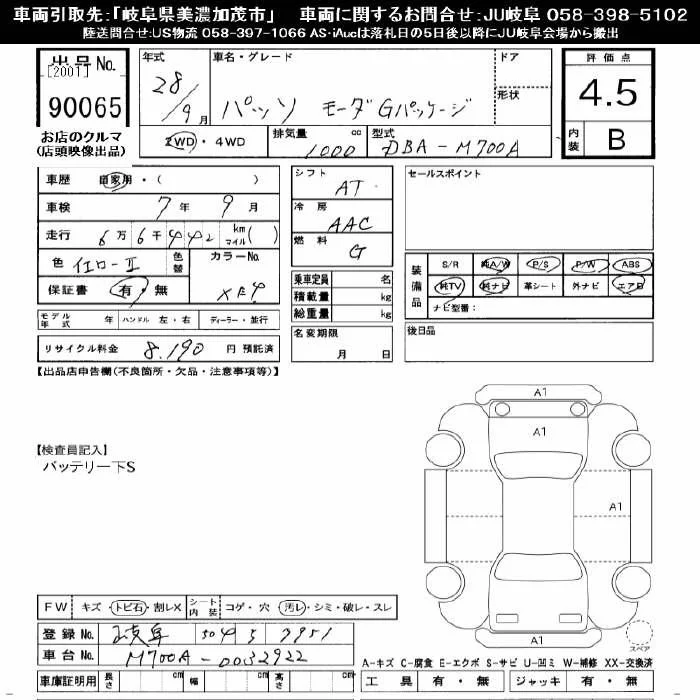 車両引取先:「岐阜県美濃加茂市」 車両に関するお問合せ:JU岐阜 058-398-5102
陸送問合せ:US物流 058-397-1066 AS・iAucは落札日の5日後以降にJU岐阜会場から搬出
出品No.
[2001]
90065
お店のクルマ
(店頭映像出品)
年式 28/9月
車名・グレード
パッソ モーダGパッケージ
ドア
形状
2WD・4WD
排気量 1000 cc
型式 DBA-M700A
評価点
4.5
内装 B
車歴 自家用・( )
車検 7年9月
走行 6万6千442 km マイル( )
色 イエローⅡ 色替 カラーNo.
保証書 有・無
シフト AT
冷房 AAC
燃料 G
乗車定員 名
積載量 kg
総重量 kg
セールスポイント
装備品
S/R 純A/W P/S P/W ABS
純TV 純ナビ 革シート 外ナビ エアB
ナビ型番:
モデル年式 年 ハンドル 左・右 ディーラー・並行
リサイクル料金 8,190 円 預託済
名変期限 月 日
後日品
【出品店申告欄(不良箇所・欠品・注意事項等)】
【検査員記入】
バッテリー下S
A1
A1
A1
A1
スペア
FW キズ・トビ石・割レX シート内装 コゲ・穴・汚レ・シミ・破レ・スレ
登録No. 岐阜 504 7951
車台No. M700A-0032922
車庫証明用 長さ cm 幅 cm 高さ cm
A-キズ C-腐食 E-エクボ S-サビ U-凹ミ W-補修 XX-交換済
工具 有・無 ジャッキ 有・無